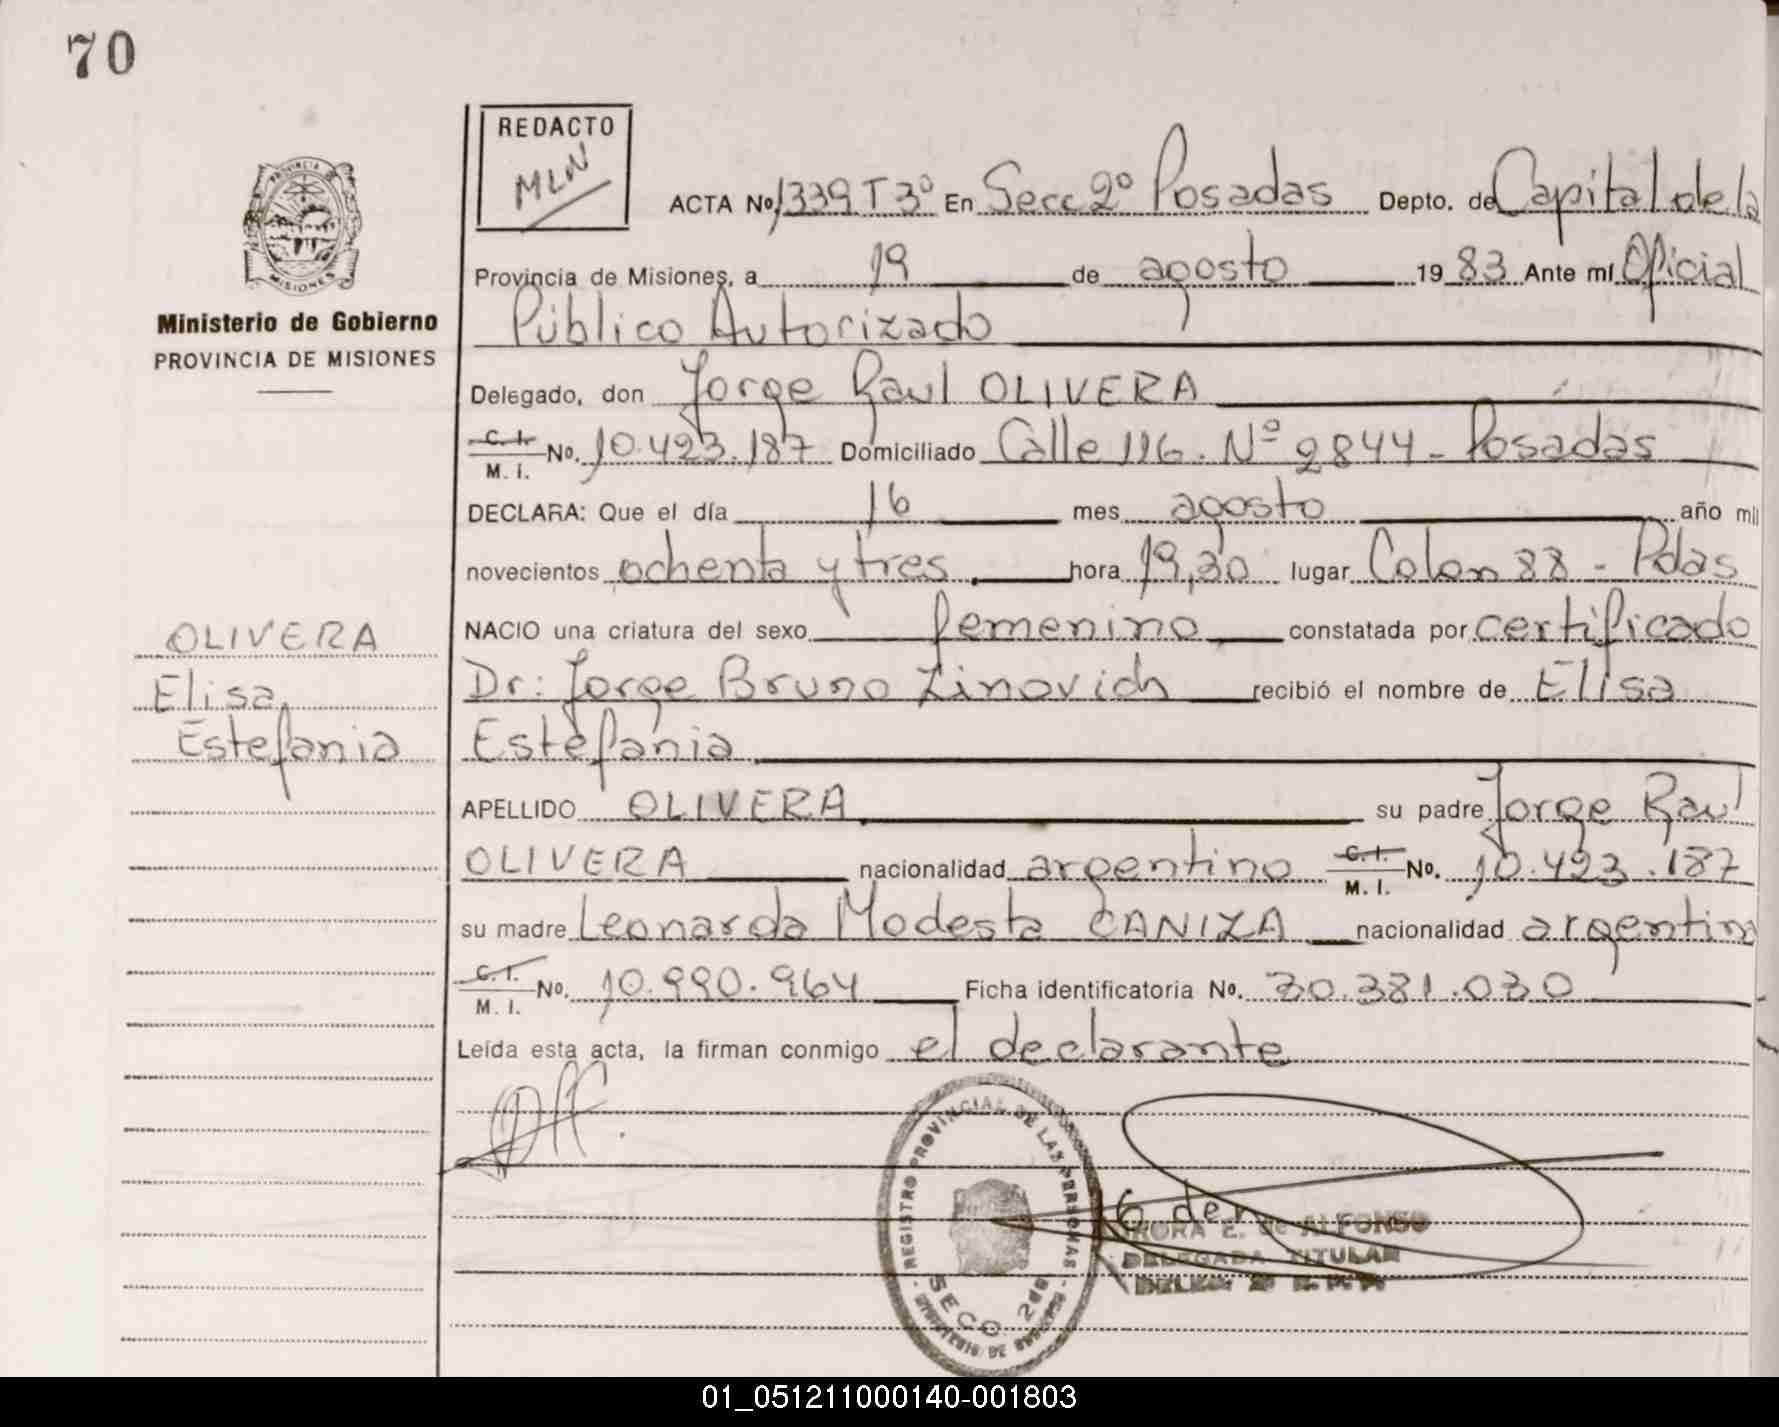 70
REDACTO
MLN
PROVINCIA DE
MISIONES
Ministerio de Gobierno
PROVINCIA DE MISIONES
ACTA No 1339 T 3º En Secc 2º Posadas Depto. de Capital de la
Provincia de Misiones, a 19 de agosto 19 83 Ante mí Oficial
Público Autorizado
Delegado, don Jorge Raul OLIVERA
C. I. M. I. No. 10.423.187 Domiciliado Calle 116. Nº 2844 - Posadas
DECLARA: Que el día 16 mes agosto año mil
novecientos ochenta y tres hora 19,30 lugar Colon 88 - Pdas
NACIO una criatura del sexo femenino constatada por certificado
Dr: Jorge Bruno Zinovich recibió el nombre de Elisa
Estefania
OLIVERA
Elisa
Estefania
APELLIDO OLIVERA su padre Jorge Raul
OLIVERA nacionalidad argentino C. I. M. I. No. 10.423.187
su madre Leonarda Modesta CANIZA nacionalidad argentina
C. I. M. I. No. 10.990.964 Ficha identificatoria No. 30.381.030
Leída esta acta, la firman conmigo el declarante
REGISTRO PROVINCIAL DE LAS PERSONAS
SECC. 2da
MINISTERIO DE GOBIERNO
E. de ALFONSO
DELEGADA TITULAR
01_051211000140-001803